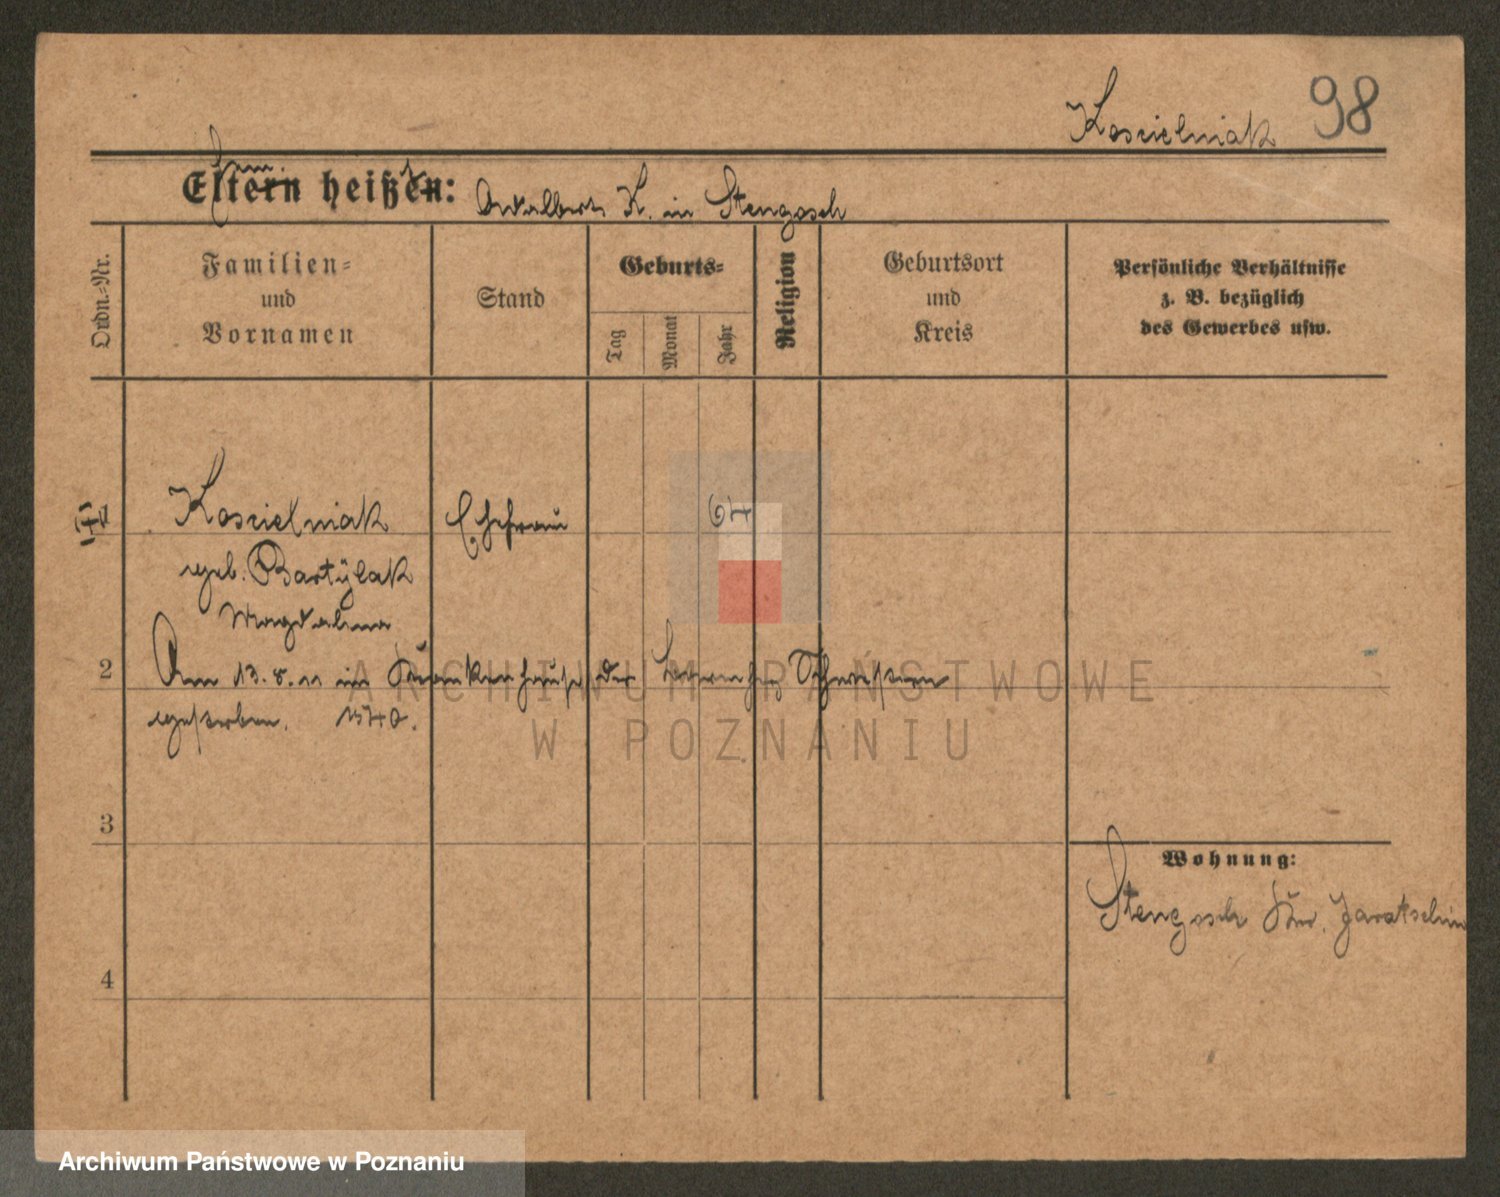 Koscielniak 98
Eltern heißen: Adalbert K. in Stengosch
Ordn.-Nr.
Familien-
und
Vornamen
Stand
Geburts-
Tag
Monat
Jahr
Religion
Geburtsort
und
Kreis
Persönliche Verhältnisse
z. B. bezüglich
des Gewerbes usw.
Koscielniak Ehefrau 67
geb. Bartÿlak
Magdalena
2 Am 13.8.11 im Krankenhause der Barmherz Schwestern
gestorben. 1540.
3
4
Wohnung:
Stengosch Kr. Jarotschin
ARCHIWUM PAŃSTWOWE
W POZNANIU
Archiwum Państwowe w Poznaniu